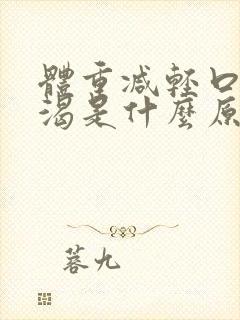 體重減輕口
渴是什麼原
蓉九